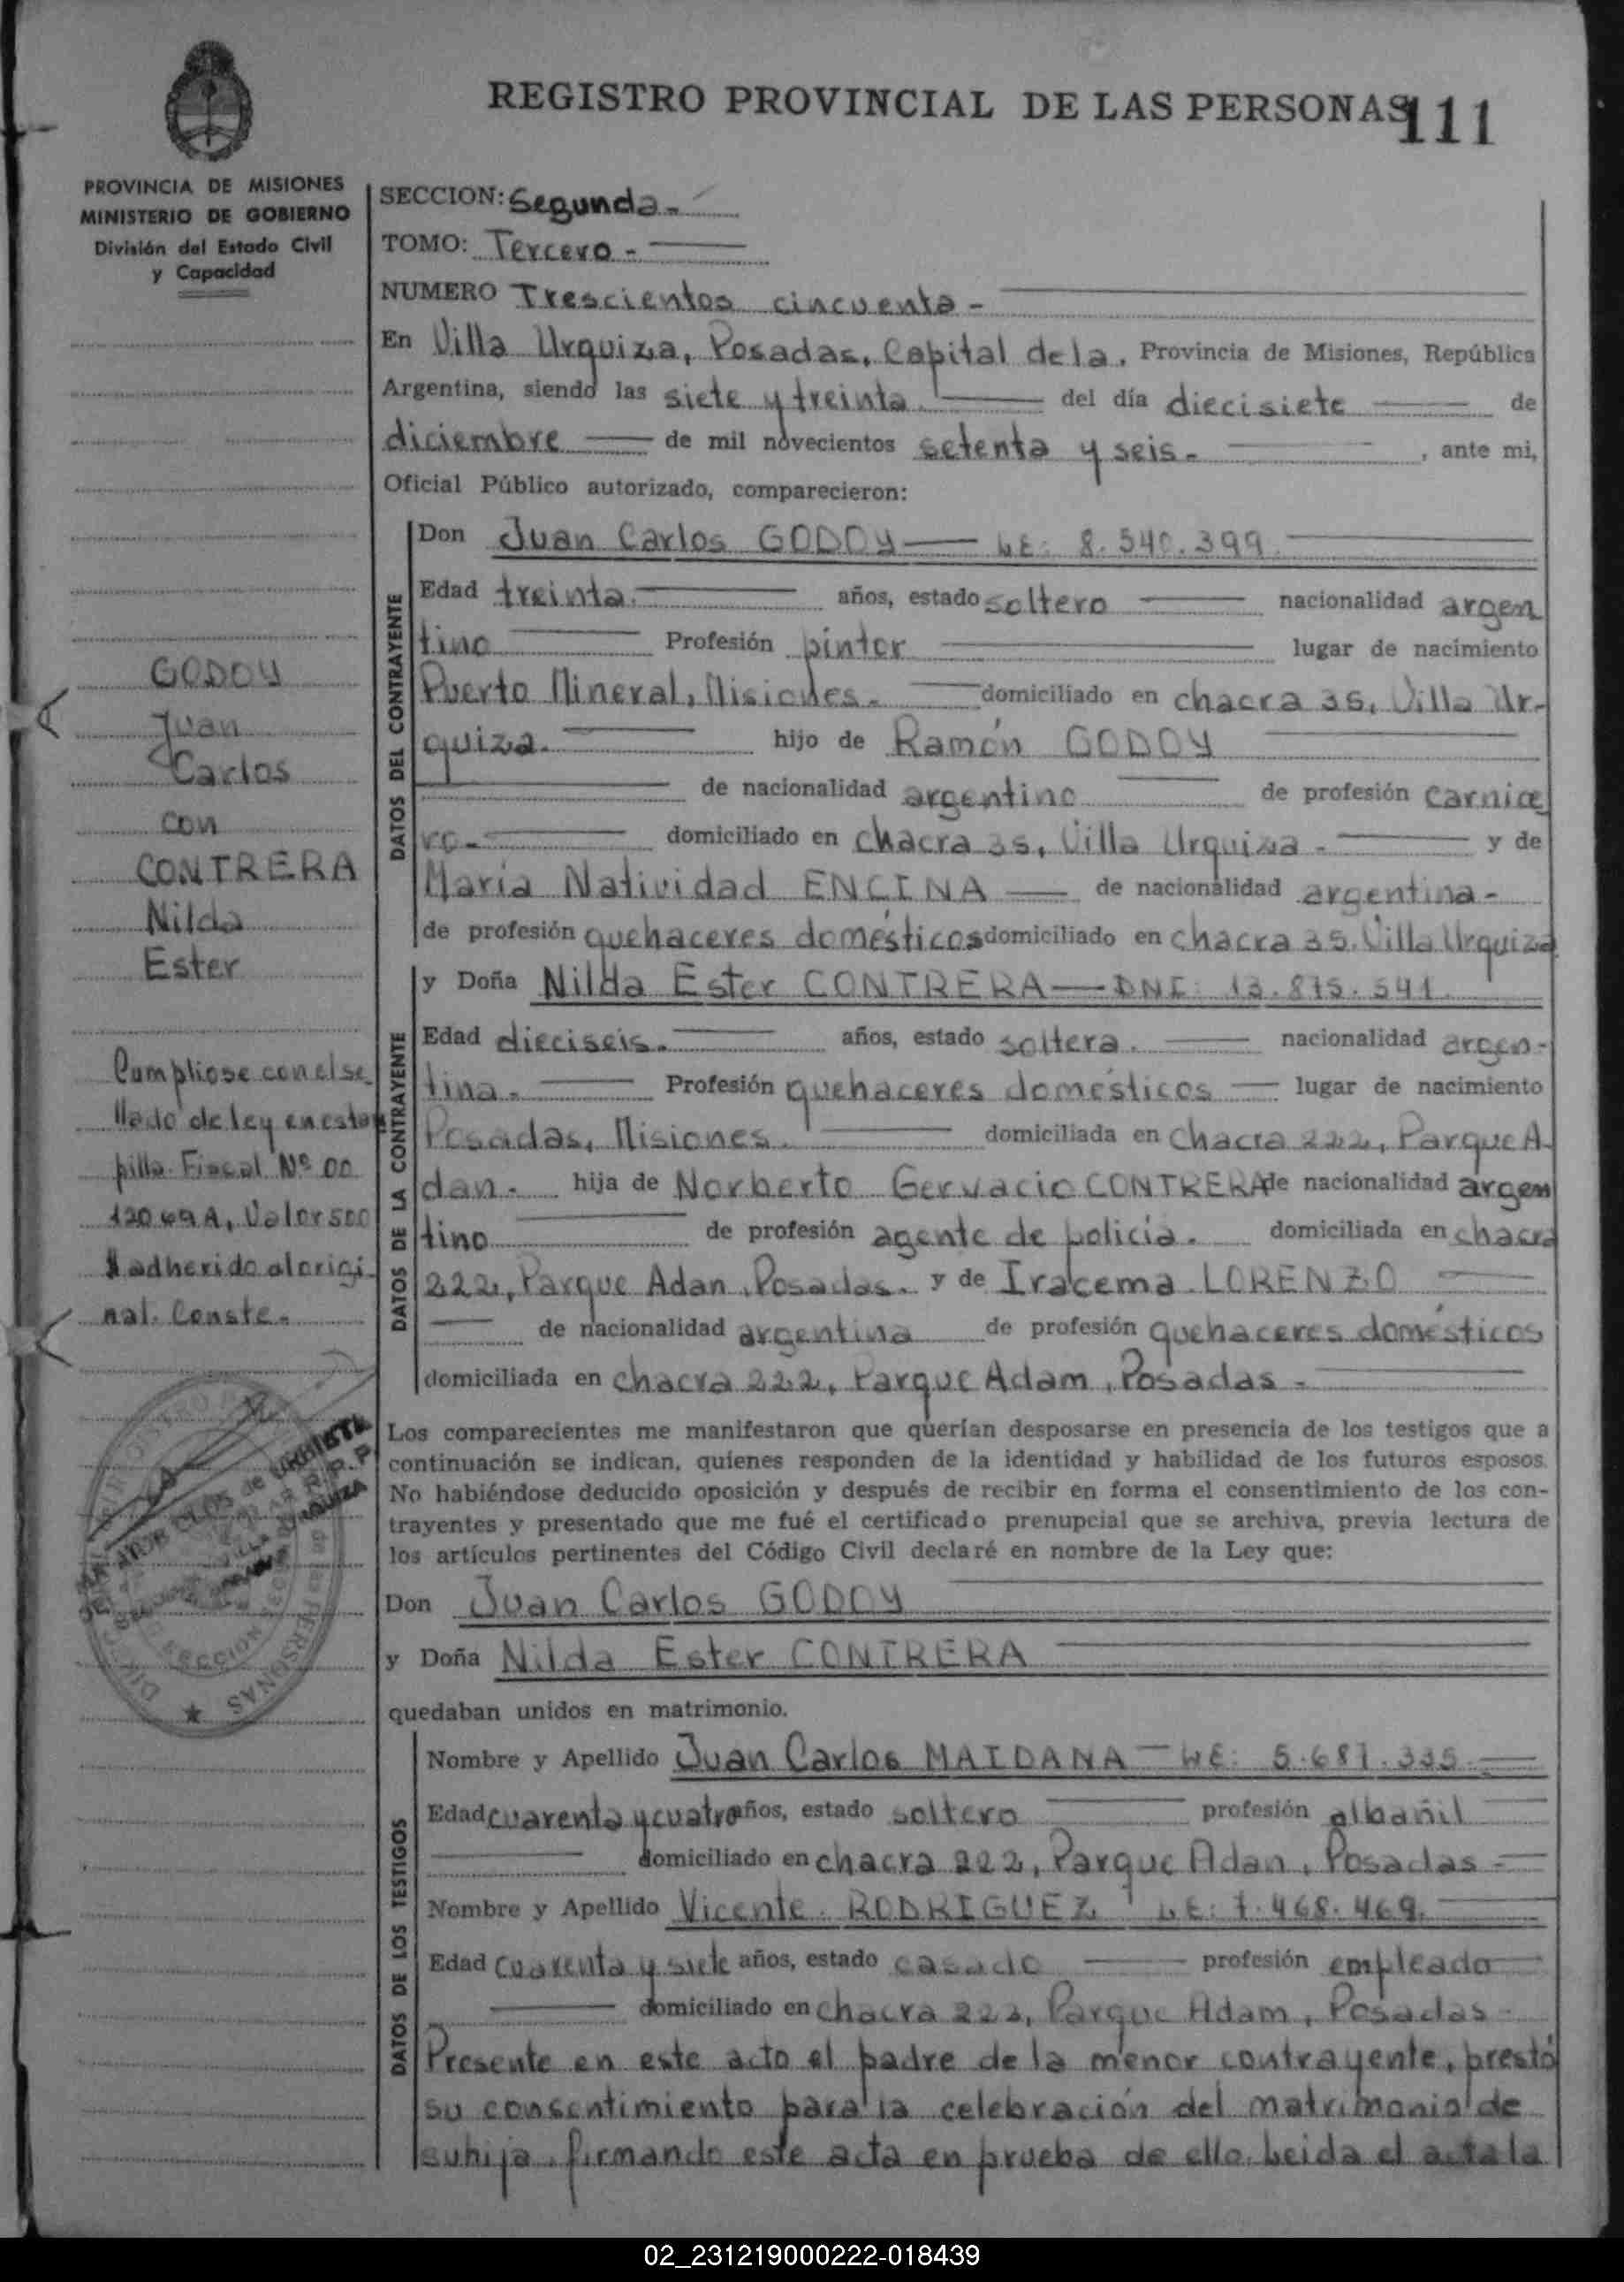 REGISTRO PROVINCIAL DE LAS PERSONAS 111
PROVINCIA DE MISIONES
MINISTERIO DE GOBIERNO
División del Estado Civil
y Capacidad
SECCION: Segunda.-
TOMO: Tercero.-
NUMERO Trescientos cincuenta.-
En Villa Urquiza, Posadas, Capital de la, Provincia de Misiones, República
Argentina, siendo las siete y treinta. del día diecisiete de
diciembre de mil novecientos setenta y seis.- , ante mi,
Oficial Público autorizado, comparecieron:
DATOS DEL CONTRAYENTE
Don Juan Carlos GODOY — LE: 8.540.399.
Edad treinta. años, estado soltero nacionalidad argen
tino Profesión pintor lugar de nacimiento
Puerto Mineral, Misiones.- domiciliado en chacra 35, Villa Ur-
quiza. hijo de Ramón GODOY
de nacionalidad argentino de profesión carnice
ro.- domiciliado en chacra 35, Villa Urquiza.- y de
María Natividad ENCINA — de nacionalidad argentina.-
de profesión quehaceres domésticos domiciliado en chacra 35, Villa Urquiza
DATOS DE LA CONTRAYENTE
y Doña Nilda Ester CONTRERA — DNI: 13.875.541.
Edad dieciseis. años, estado soltera. nacionalidad argen-
tina.- Profesión quehaceres domésticos — lugar de nacimiento
Posadas, Misiones. domiciliada en chacra 222, Parque A-
dan.- hija de Norberto Gervacio CONTRERA de nacionalidad argen
tino de profesión agente de policía. domiciliada en chacra
222, Parque Adan, Posadas. y de Iracema LORENZO
de nacionalidad argentina de profesión quehaceres domésticos
domiciliada en chacra 222, Parque Adam, Posadas.-
Los comparecientes me manifestaron que querían desposarse en presencia de los testigos que a
continuación se indican, quienes responden de la identidad y habilidad de los futuros esposos.
No habiéndose deducido oposición y después de recibir en forma el consentimiento de los con-
trayentes y presentado que me fué el certificado prenupcial que se archiva, previa lectura de
los artículos pertinentes del Código Civil declaré en nombre de la Ley que:
Don Juan Carlos GODOY
y Doña Nilda Ester CONTRERA
quedaban unidos en matrimonio.
DATOS DE LOS TESTIGOS
Nombre y Apellido Juan Carlos MAIDANA — LE: 5.687.335.
Edad cuarenta y cuatro años, estado soltero profesión albañil
domiciliado en chacra 222, Parque Adan, Posadas.-
Nombre y Apellido Vicente RODRIGUEZ LE: 7.468.469.
Edad cuarenta y siete años, estado casado profesión empleado
domiciliado en chacra 222, Parque Adam, Posadas.-
Presente en este acto el padre de la menor contrayente, prestó
su consentimiento para la celebración del matrimonio de
su hija, firmando este acta en prueba de ello. Leida el acta la
GODOY
Juan
Carlos
con
CONTRERA
Nilda
Ester
Cumpliose con el se
llado de ley en estam
pilla Fiscal Nº 00
12069A, Valor 500
$ adherido al origi-
nal. Conste.-
02_231219000222-018439